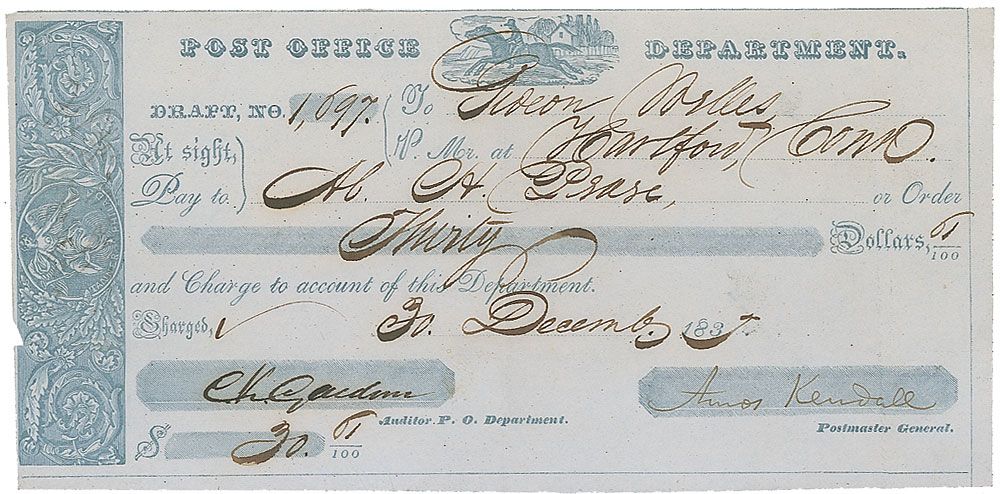 POST OFFICE DEPARTMENT.
DRAFT, NO. 1,697. To Gideon Welles
At sight, P. Mr. at Hartford, Conn.
Pay to H. Pease, or Order
Thirty Dollars, 61/100
and Charge to account of this Department.
Charged, 30. December, 1837
Amos Kendall
Auditor P. O. Department.
Postmaster General.
$ 30. 61/100